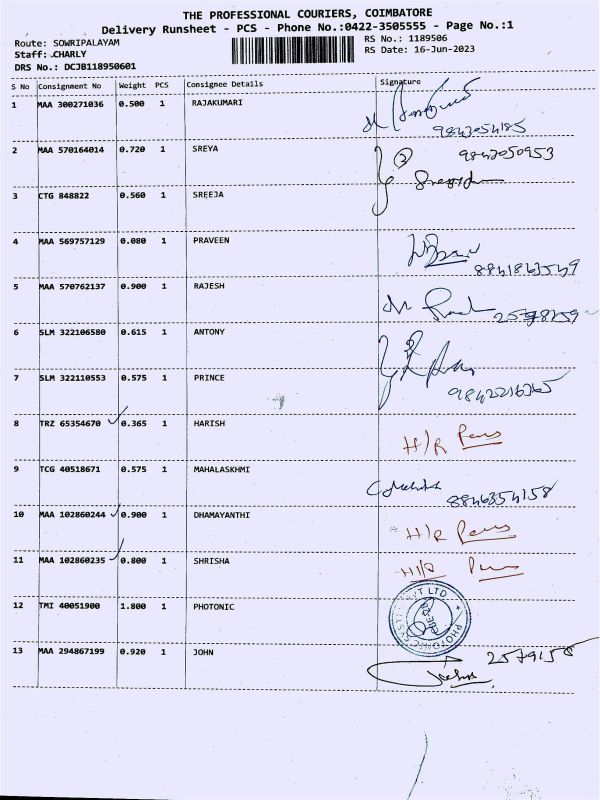 THE PROFESSIONAL COURIERS, COIMBATORE
Delivery Runsheet - PCS - Phone No.:0422-3505555 - Page No.:1
Route: SOWRIPALAYAM RS No.: 1189506
Staff: CHARLY RS Date: 16-Jun-2023
DRS No.: DCJB118950601
S No Consignment No Weight PCS Consignee Details Signature
1 MAA 300271036 0.500 1 RAJAKUMARI
9843054185
2 MAA 570164014 0.720 1 SREYA 2 9842050953
3 CTG 848822 0.560 1 SREEJA
4 MAA 569757129 0.080 1 PRAVEEN
5 MAA 570762137 0.900 1 RAJESH
6 SLM 322106580 0.615 1 ANTONY
7 SLM 322110553 0.575 1 PRINCE
8 TRZ 65354670 0.365 1 HARISH
H/R
9 TCG 40518671 0.575 1 MAHALASKHMI
10 MAA 102860244 0.900 1 DHAMAYANTHI
H/R
11 MAA 102860235 0.800 1 SHRISHA
H/R
12 TMI 40051900 1.800 1 PHOTONIC
13 MAA 294867199 0.920 1 JOHN